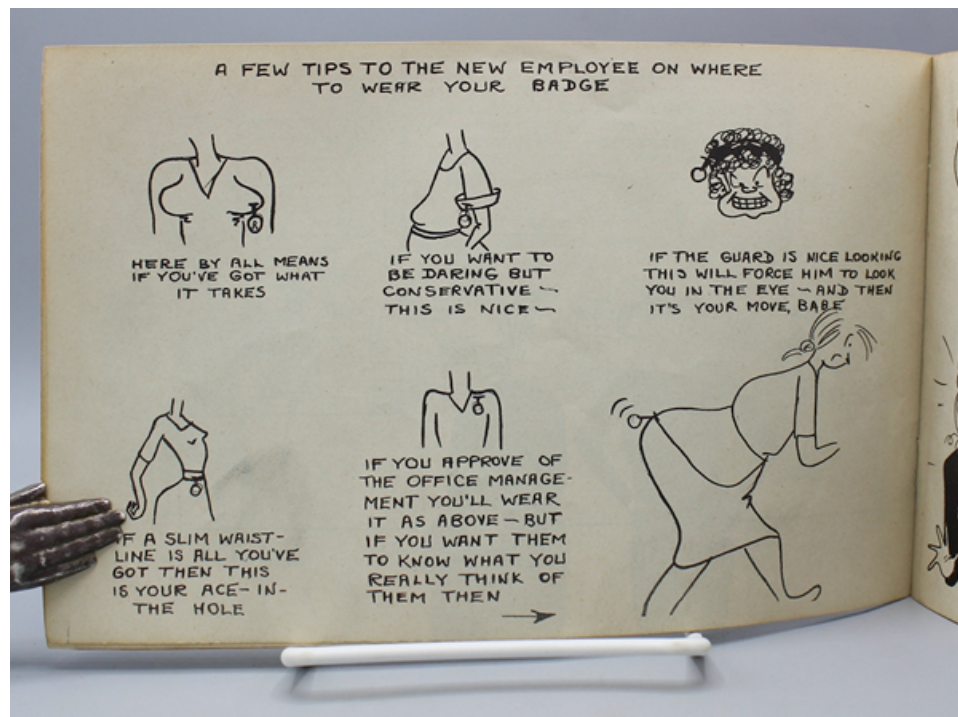 A FEW TIPS TO THE NEW EMPLOYEE ON WHERE
TO WEAR YOUR BADGE
HERE BY ALL MEANS
IF YOU'VE GOT WHAT
IT TAKES
IF YOU WANT TO
BE DARING BUT
CONSERVATIVE ~
THIS IS NICE ~
IF THE GUARD IS NICE LOOKING
THIS WILL FORCE HIM TO LOOK
YOU IN THE EYE ~ AND THEN
IT'S YOUR MOVE, BABE
IF A SLIM WAIST-
LINE IS ALL YOU'VE
GOT THEN THIS
IS YOUR ACE-IN-
THE HOLE
IF YOU APPROVE OF
THE OFFICE MANAGE-
MENT YOU'LL WEAR
IT AS ABOVE ~ BUT
IF YOU WANT THEM
TO KNOW WHAT YOU
REALLY THINK OF
THEM THEN